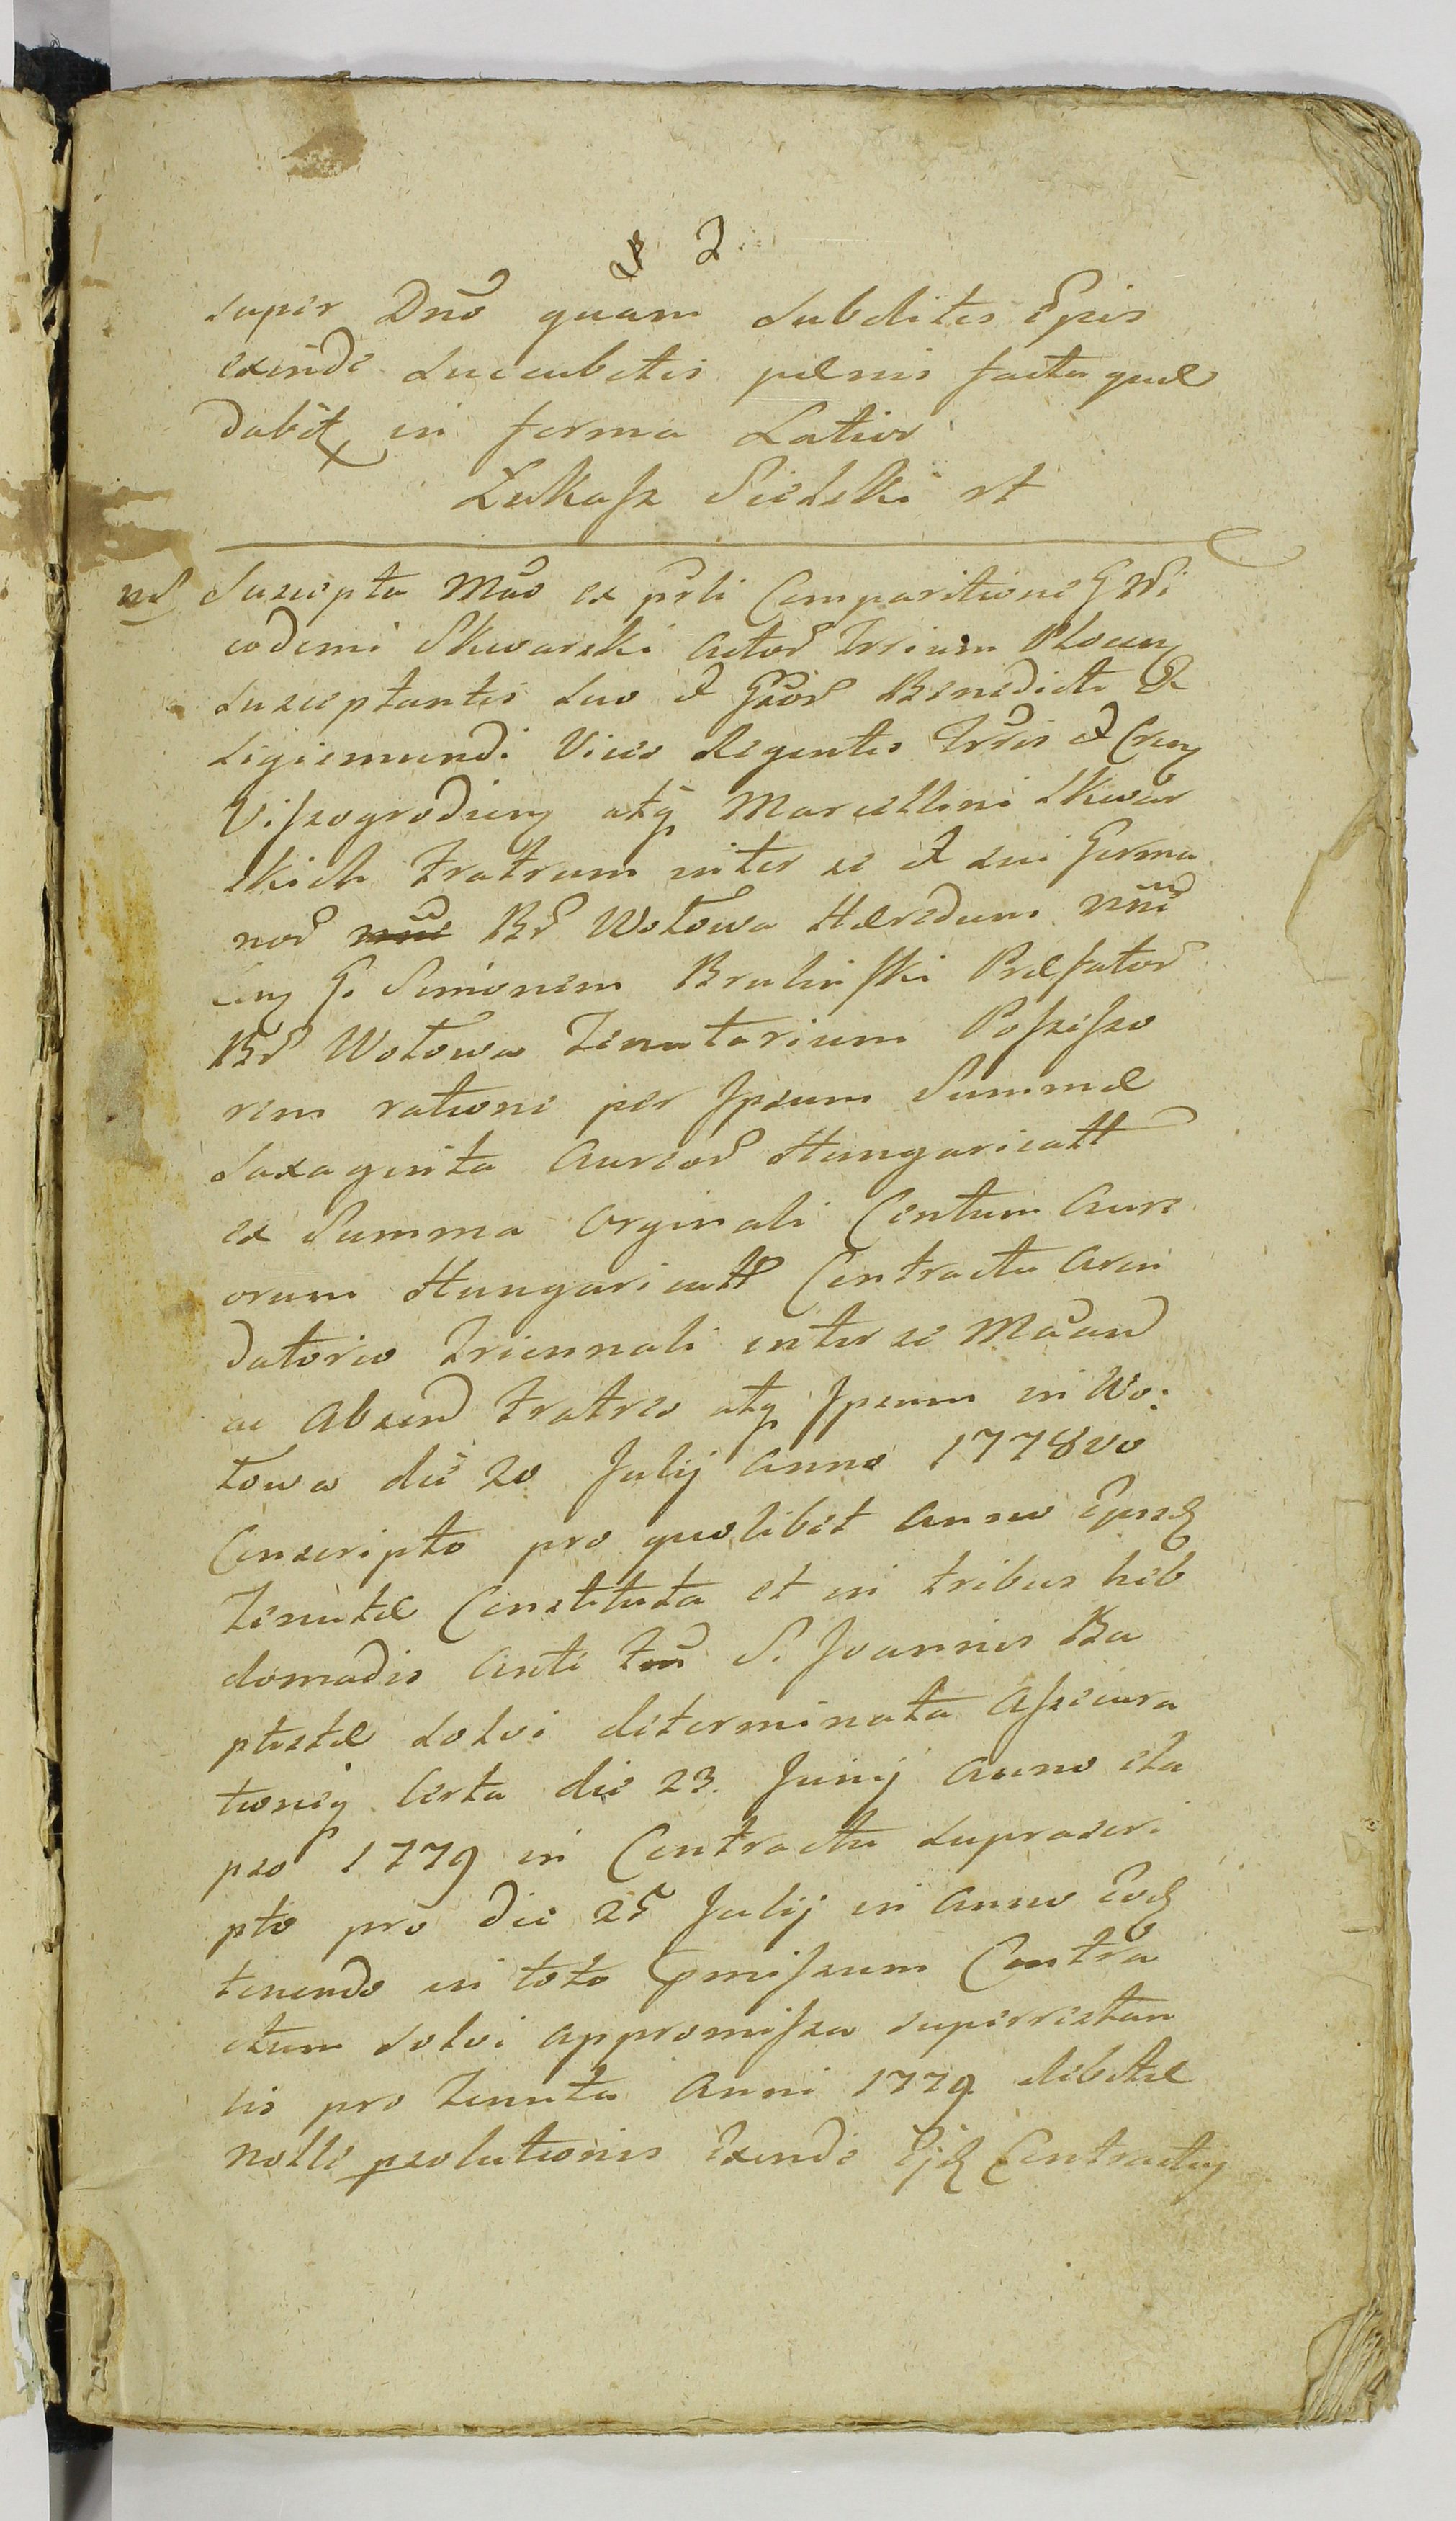 2
super Dnō quam subditis Epis
exinde succubitis pænis factaquæ
dabit in forma Latior
Łukasz Sielski rt
Suscepta Mās ex prli Comparitione G Ni
codemi Skwarski actor Trrium Plocen
susceptantis suo et Gsor Benedicti &
Sigismundi Vices Regentis Trris et Cren
Viszogrodien atq Marcellini Skwar
skich Fratrum inter se et sui Germa
nor Br Wotowa Hæredum nni
G. Simonem Brulinski Præfator
Br Wotowa Tenutarium Possesso
rem ratione per Ipsum Summæ
Sexaginta Aureor Hungaricall
ex Summa orginali Centum Aure
orum Hungaricall Contractu Aren
datorio Triennali inter se Māan
ac Absen Fratres atq Ipsum in Wo:
towa die 20 Julij Anno 1778vo
Conscripto pro quolibet anno Ejusd
Tenutæ Constituta et in tribus heb
domadis ante S. Joannis Ba
ptistæ solvi determinata Assecura
tioneq certa die 23. Junij anno ela
pso 1779 in Contractu suprascri
pto pro die 25 Julij in anno Eod
tenendo in toto pmissum Contra
ctum solvi appromissa superrestan
tis pro Tenuta Anni 1779 debitæ
nolle psolutionis Exinde Ejd Contractuj